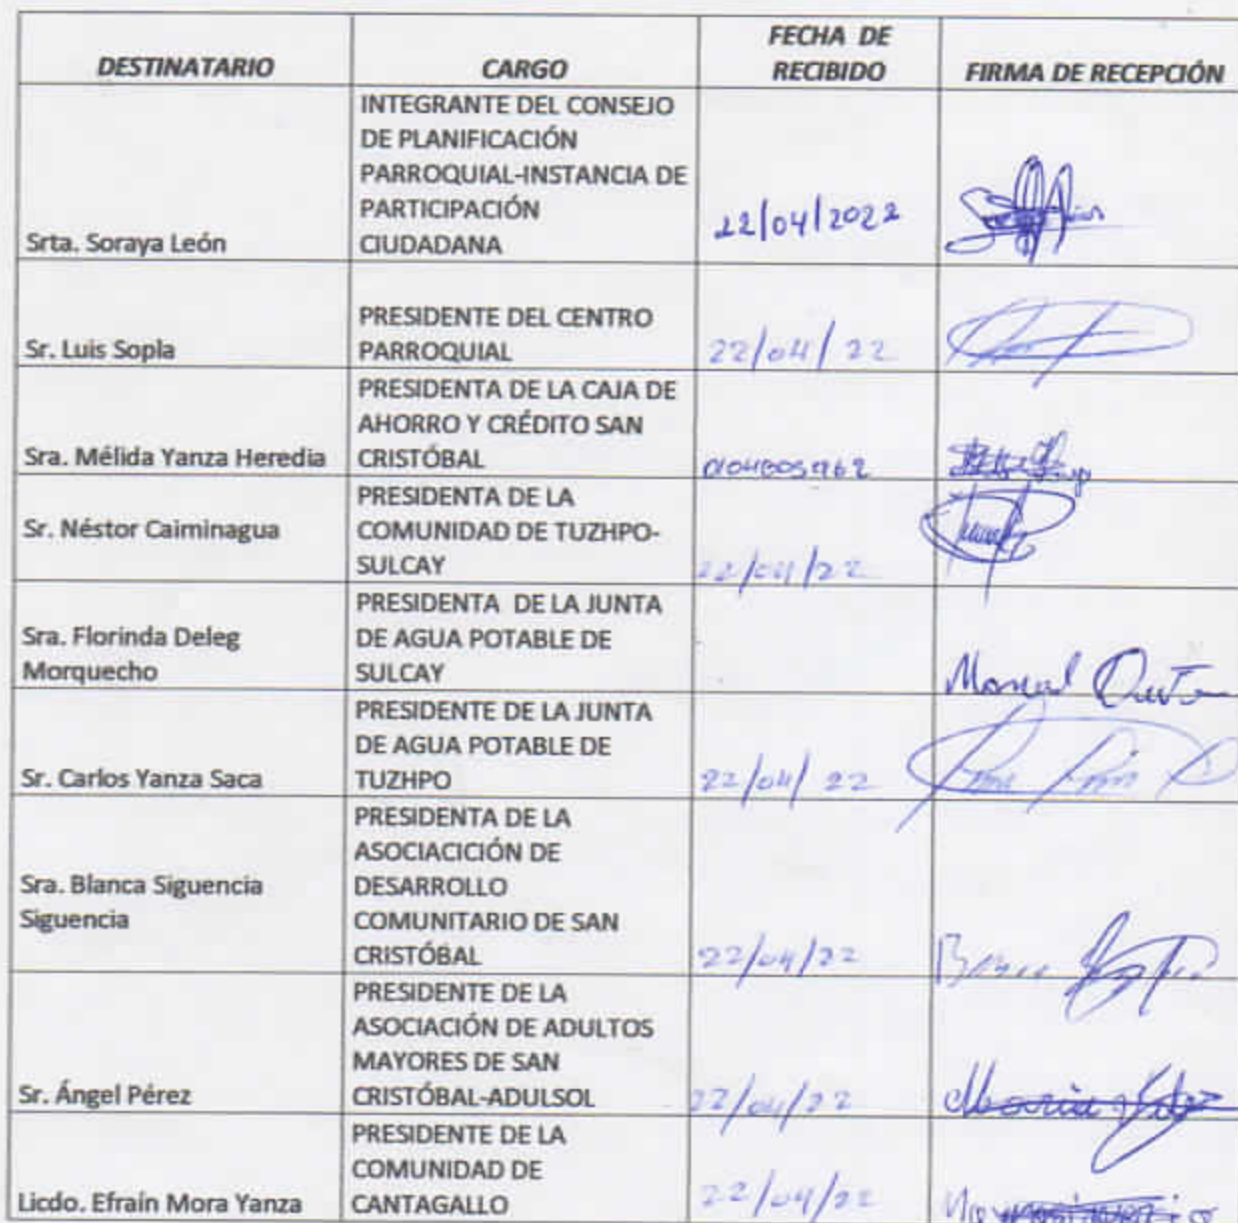 DESTINATARIO
CARGO
FECHA DE
RECIBIDO
FIRMA DE RECEPCIÓN
Srta. Soraya León
INTEGRANTE DEL CONSEJO
DE PLANIFICACIÓN
PARROQUIAL-INSTANCIA DE
PARTICIPACIÓN
CIUDADANA
22/04/2022
Sr. Luis Sopla
PRESIDENTE DEL CENTRO
PARROQUIAL
22/04/22
Sra. Mélida Yanza Heredia
PRESIDENTA DE LA CAJA DE
AHORRO Y CRÉDITO SAN
CRISTÓBAL
Sr. Néstor Caiminagua
PRESIDENTA DE LA
COMUNIDAD DE TUZHPO-
SULCAY
22/04/22
Sra. Florinda Deleg
Morquecho
PRESIDENTA DE LA JUNTA
DE AGUA POTABLE DE
SULCAY
Manuel
Sr. Carlos Yanza Saca
PRESIDENTE DE LA JUNTA
DE AGUA POTABLE DE
TUZHPO
22/04/22
Sra. Blanca Siguencia
Siguencia
PRESIDENTA DE LA
ASOCIACICIÓN DE
DESARROLLO
COMUNITARIO DE SAN
CRISTÓBAL
22/04/22
Sr. Ángel Pérez
PRESIDENTE DE LA
ASOCIACIÓN DE ADULTOS
MAYORES DE SAN
CRISTÓBAL-ADULSOL
22/04/22
Licdo. Efraín Mora Yanza
PRESIDENTE DE LA
COMUNIDAD DE
CANTAGALLO
22/04/22